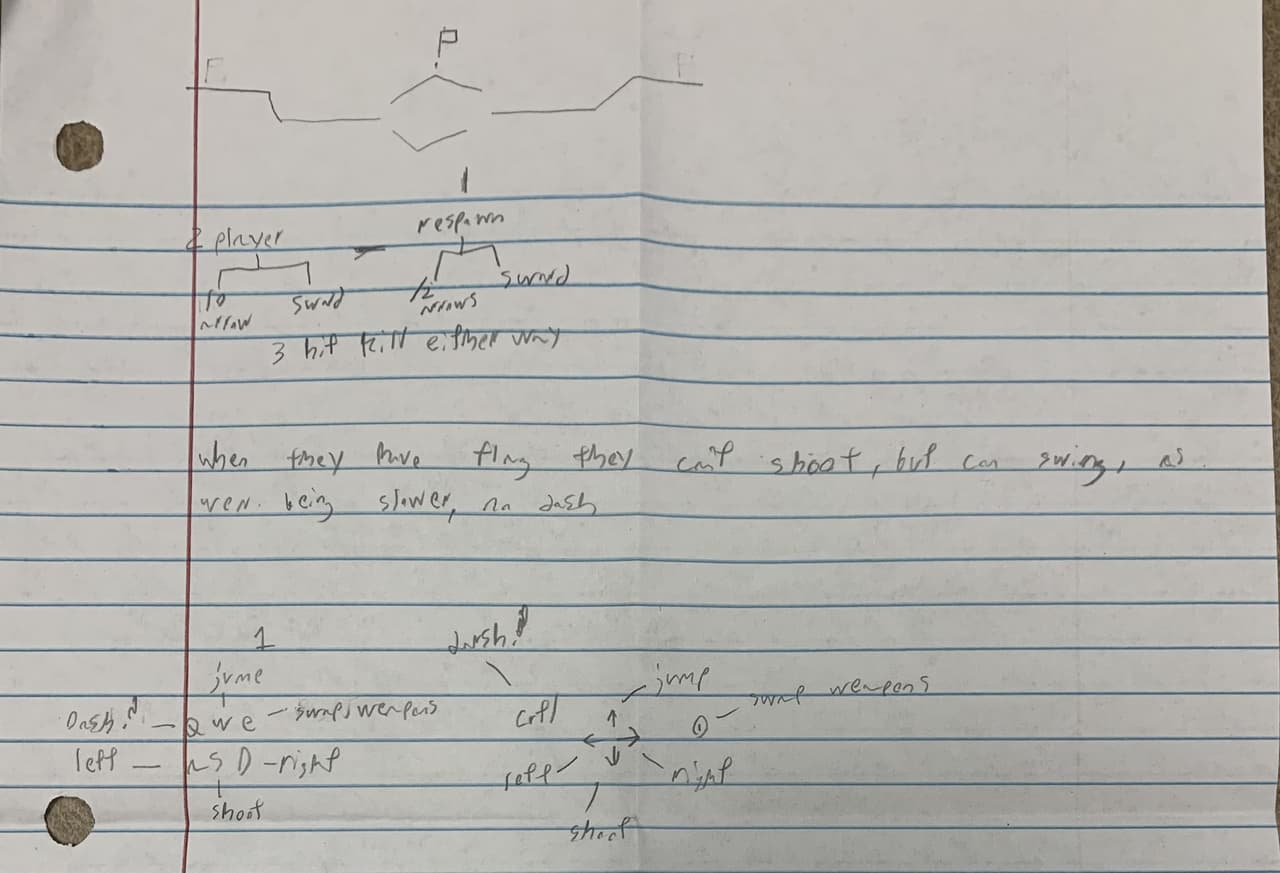 P
F F
1
2 player respawn
10 sword 12 sword
arrow arrows
3 hit kill either way
when they have flag they can't shoot, but can swing, as
well being slower, no dash
1 dash!
jume jump
Dash! — Q W E — swap weapons crtl ↑ ① — swap weapons
left — A S D - right ← ↓ →
left right
shoot shoot